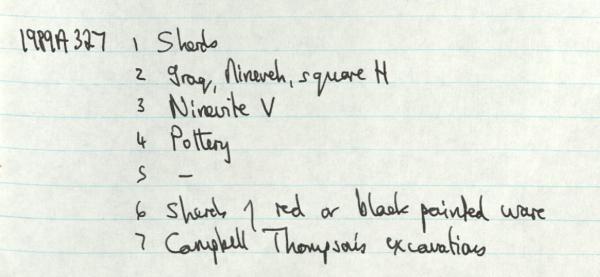 1989A327 1 Sherds
2 Iraq, Nineveh, square H
3 Ninevite V
4 Pottery
5 —
6 Sherds of red or black painted ware
7 Campbell Thompson's excavations